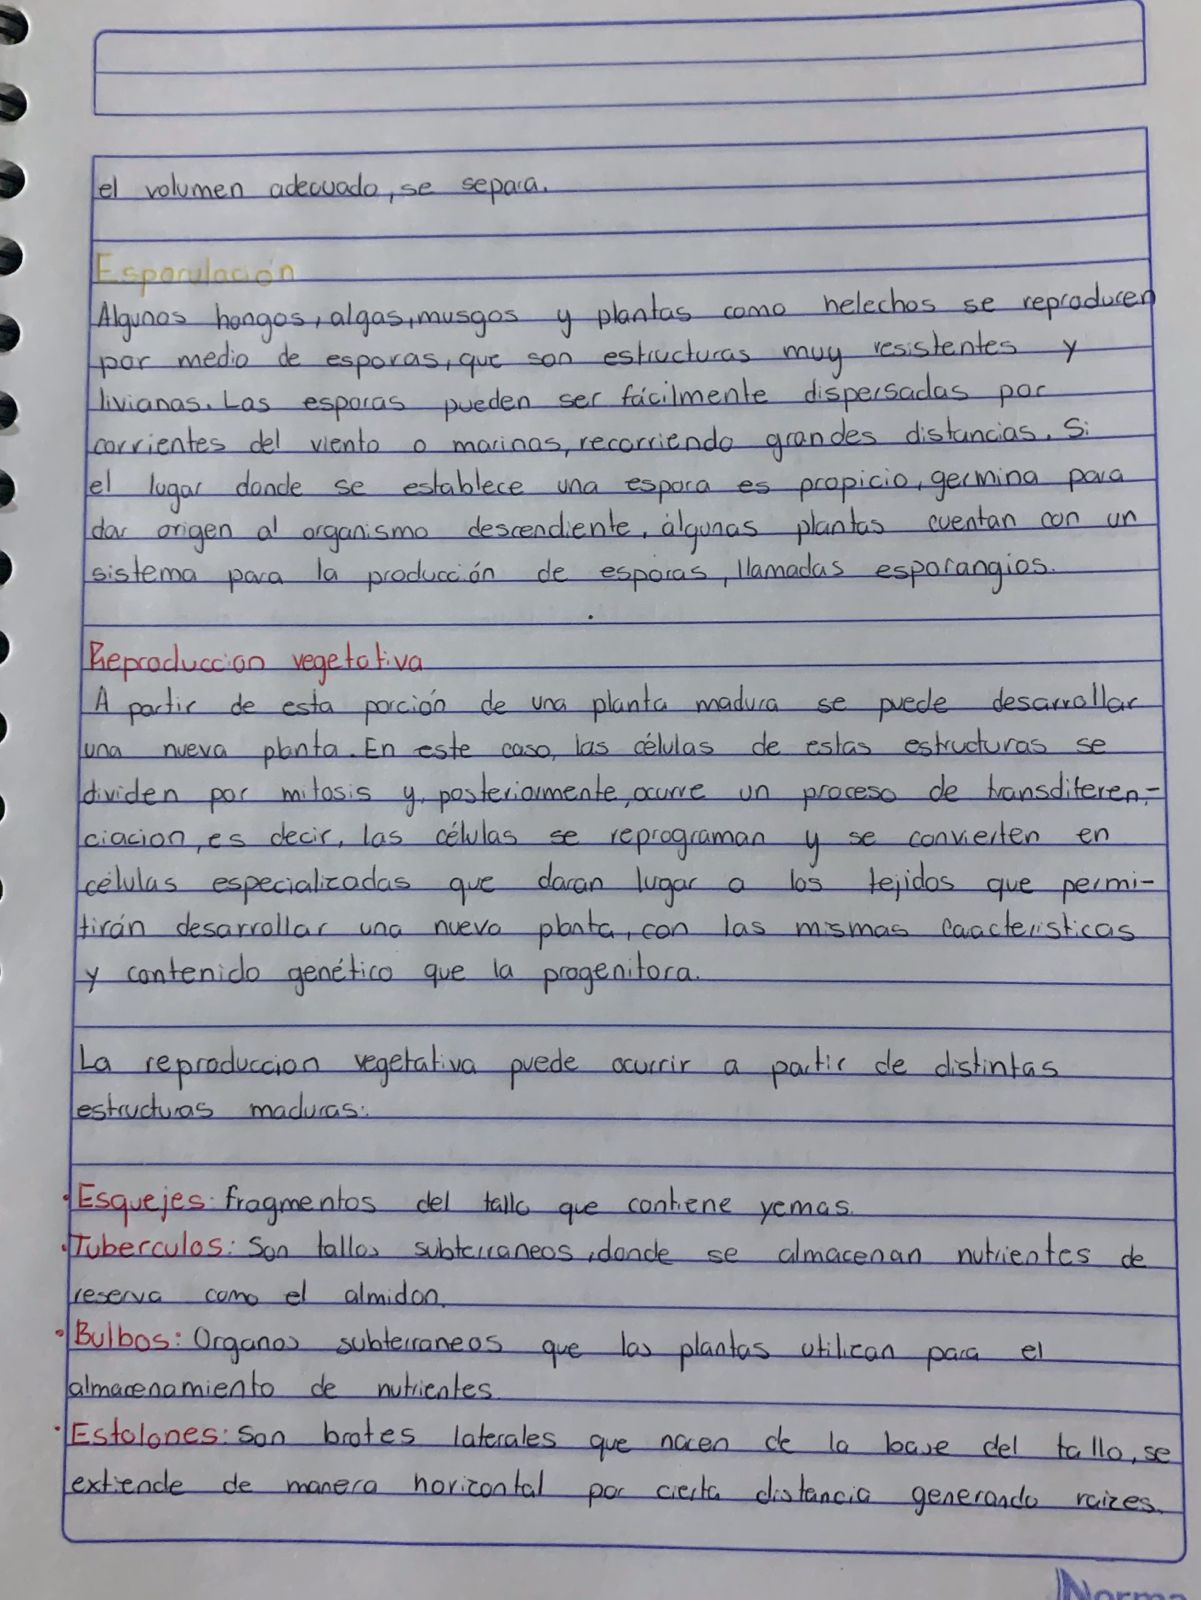 el volumen adecuado, se separa.
Esporulación
Algunos hongos, algas, musgos y plantas como helechos se reproducen
por medio de esporas, que son estructuras muy resistentes y
livianas. Las esporas pueden ser fácilmente dispersadas por
corrientes del viento o marinas, recorriendo grandes distancias. Si
el lugar donde se establece una espora es propicio, germina para
dar origen al organismo descendiente, algunas plantas cuentan con un
sistema para la producción de esporas, llamadas esporangios.
Reproduccion vegetativa
A partir de esta porción de una planta madura se puede desarrollar
una nueva planta. En este caso, las células de estas estructuras se
dividen por mitosis y, posteriormente, ocurre un proceso de transdiferen-
ciacion, es decir, las células se reprograman y se convierten en
células especializadas que daran lugar a los tejidos que permi-
tirán desarrollar una nueva planta, con las mismas caacteristicas
y contenido genético que la progenitora.
La reproduccion vegetativa puede ocurrir a partir de distintas
estructuras maduras:
• Esquejes: fragmentos del tallo que contiene yemas.
• Tuberculos: Son tallos subterraneos, donde se almacenan nutrientes de
reserva como el almidon.
• Bulbos: Organos subterraneos que las plantas utilizan para el
almacenamiento de nutrientes
• Estolones: Son brotes laterales que nacen de la base del tallo, se
extiende de manera horizontal por cierta distancia generando raizes.
Norma